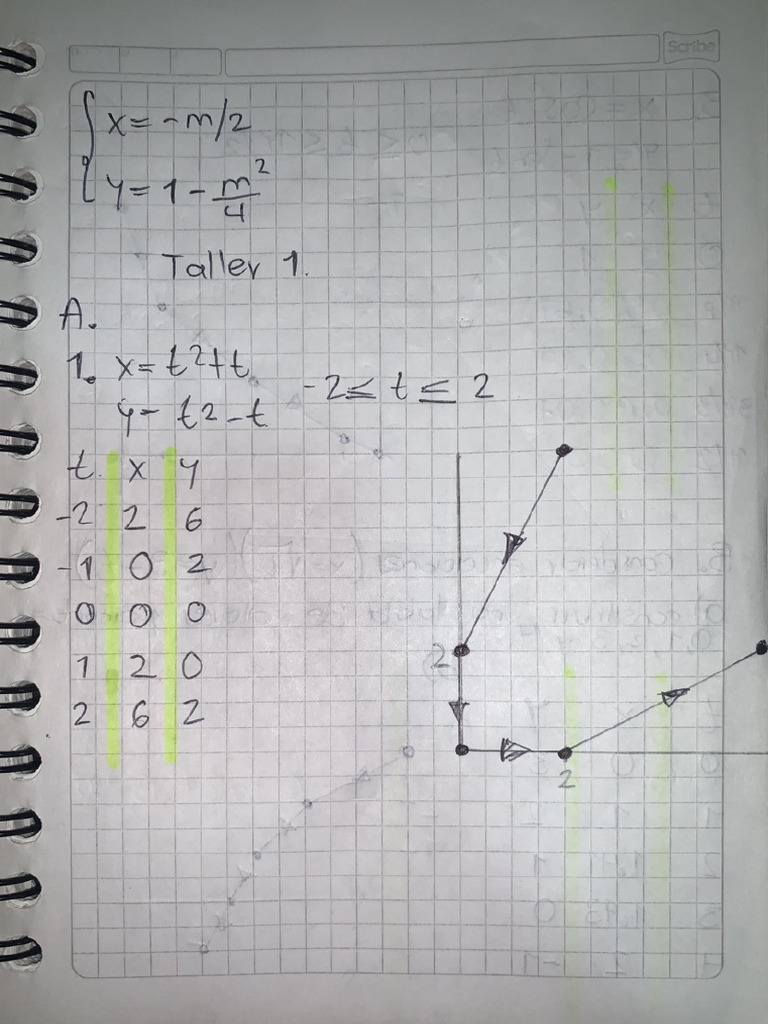 Scribe
x = -m/2
y = 1 - m²/4
Taller 1.
A.
1. x = t²+t
-2 ≤ t ≤ 2
y = t2 - t
t x y
-2 2 6
-1 0 2
0 0 0
1 2 0
2 6 2
2
2